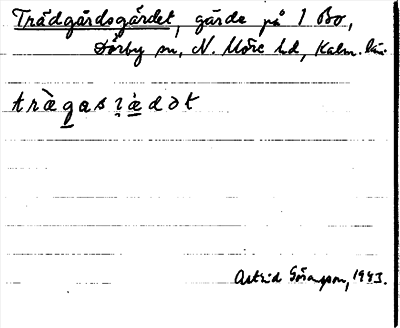 Trädgårdsgärdet, gärde på 1 Bo,
Dörby sn, N. Möre hd, Kalm. län.
træ̀gasʒæ̀dət
Astrid Göransson, 1943.